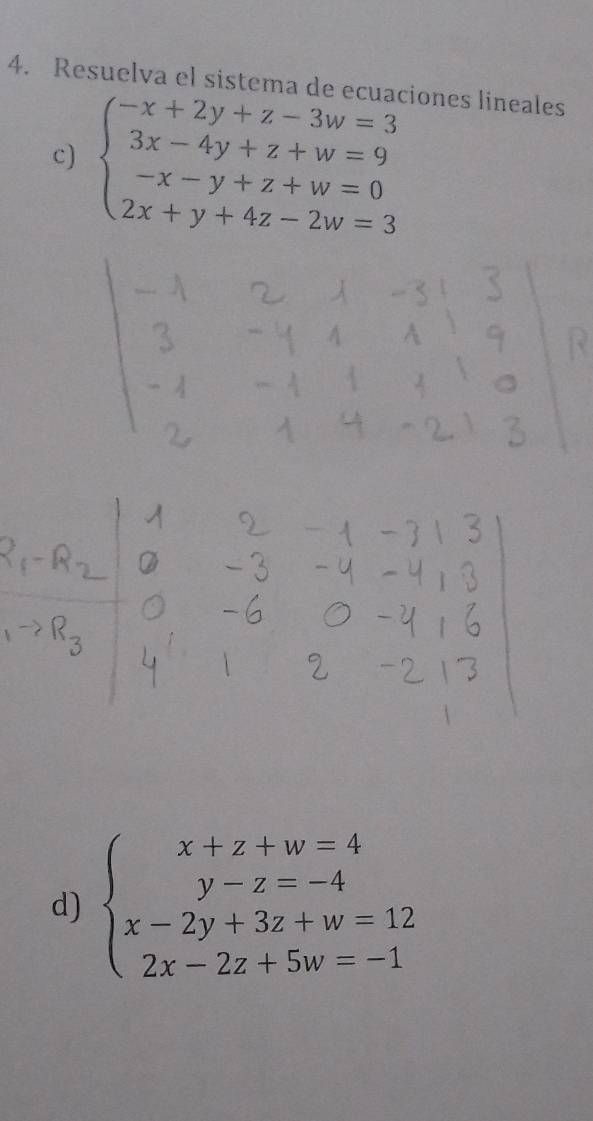 4. Resuelva el sistema de ecuaciones lineales
c) −x + 2y + z − 3w = 3
3x − 4y + z + w = 9
−x − y + z + w = 0
2x + y + 4z − 2w = 3
-1 2 1 -3 | 3
3 -4 1 1 | 9 R
-1 -1 1 1 | 0
2 1 4 -2 | 3
1 2 -1 -3 | 3
R₁-R₂ 0 -3 -4 -4 | 3
0 -6 0 -4 | 6
₁→R₃
4 1 2 -2 | 3
d) x + z + w = 4
y − z = −4
x − 2y + 3z + w = 12
2x − 2z + 5w = −1